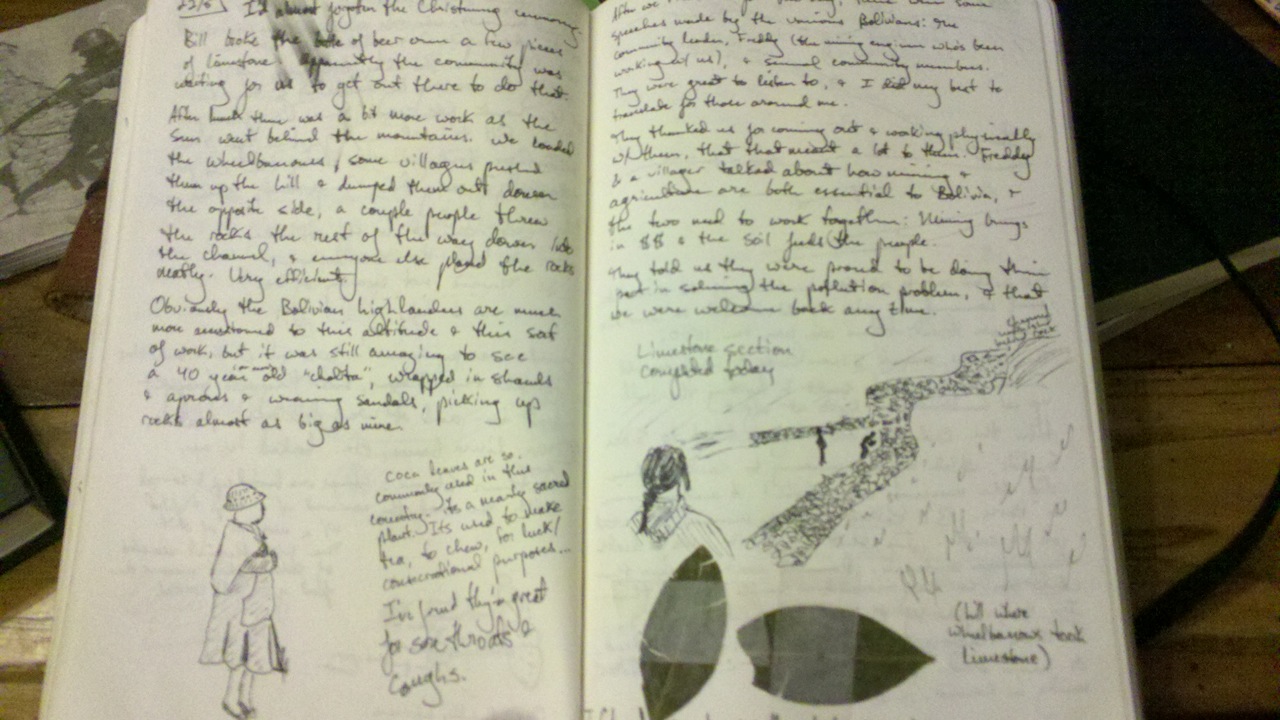 22/5 I'd almost forgotten the Christening ceremony.
Bill broke the bottle of beer over a few pieces
of limestone. Apparently the community was
waiting for us to get out there to do that.
After lunch there was a bit more work as the
sun went behind the mountains. We loaded
the wheelbarrows, some villagers pushed
them up the hill & dumped them out down
the opposite side, a couple people threw
the rocks the rest of the way down into
the channel, & everyone else placed the rocks
neatly. Very efficient.
Obviously the Bolivian highlanders are much
more accustomed to this altitude & this sort
of work, but it was still amazing to see
a 40 year old "cholita", wrapped in shawls
& aprons & wearing sandals, picking up
rocks almost as big as mine.
coca leaves are so
commonly used in this
country. Its a nearly sacred
plant. Its used to make
tea, to chew, for luck/
conversational purposes...
I've found they're great
for sore throats &
coughs.
After we
speeches made by the various Bolivians: the
community leader, Freddy (the mining engineer who's been
working w/ us), & several community members.
They were great to listen to, & I did my best to
translate for those around me.
They thanked us for coming out & working physically
w/ them, that that meant a lot to them. Freddy
& a villager talked about how mining &
agriculture are both essential to Bolivia, &
the two need to work together: Mining brings
in $$ & the soil feeds the people.
They told us they were proud to be doing their
part in solving the pollution problem, & that
we were welcome back any time.
Limestone section
completed today
(hill where
wheelbarrows took
limestone)